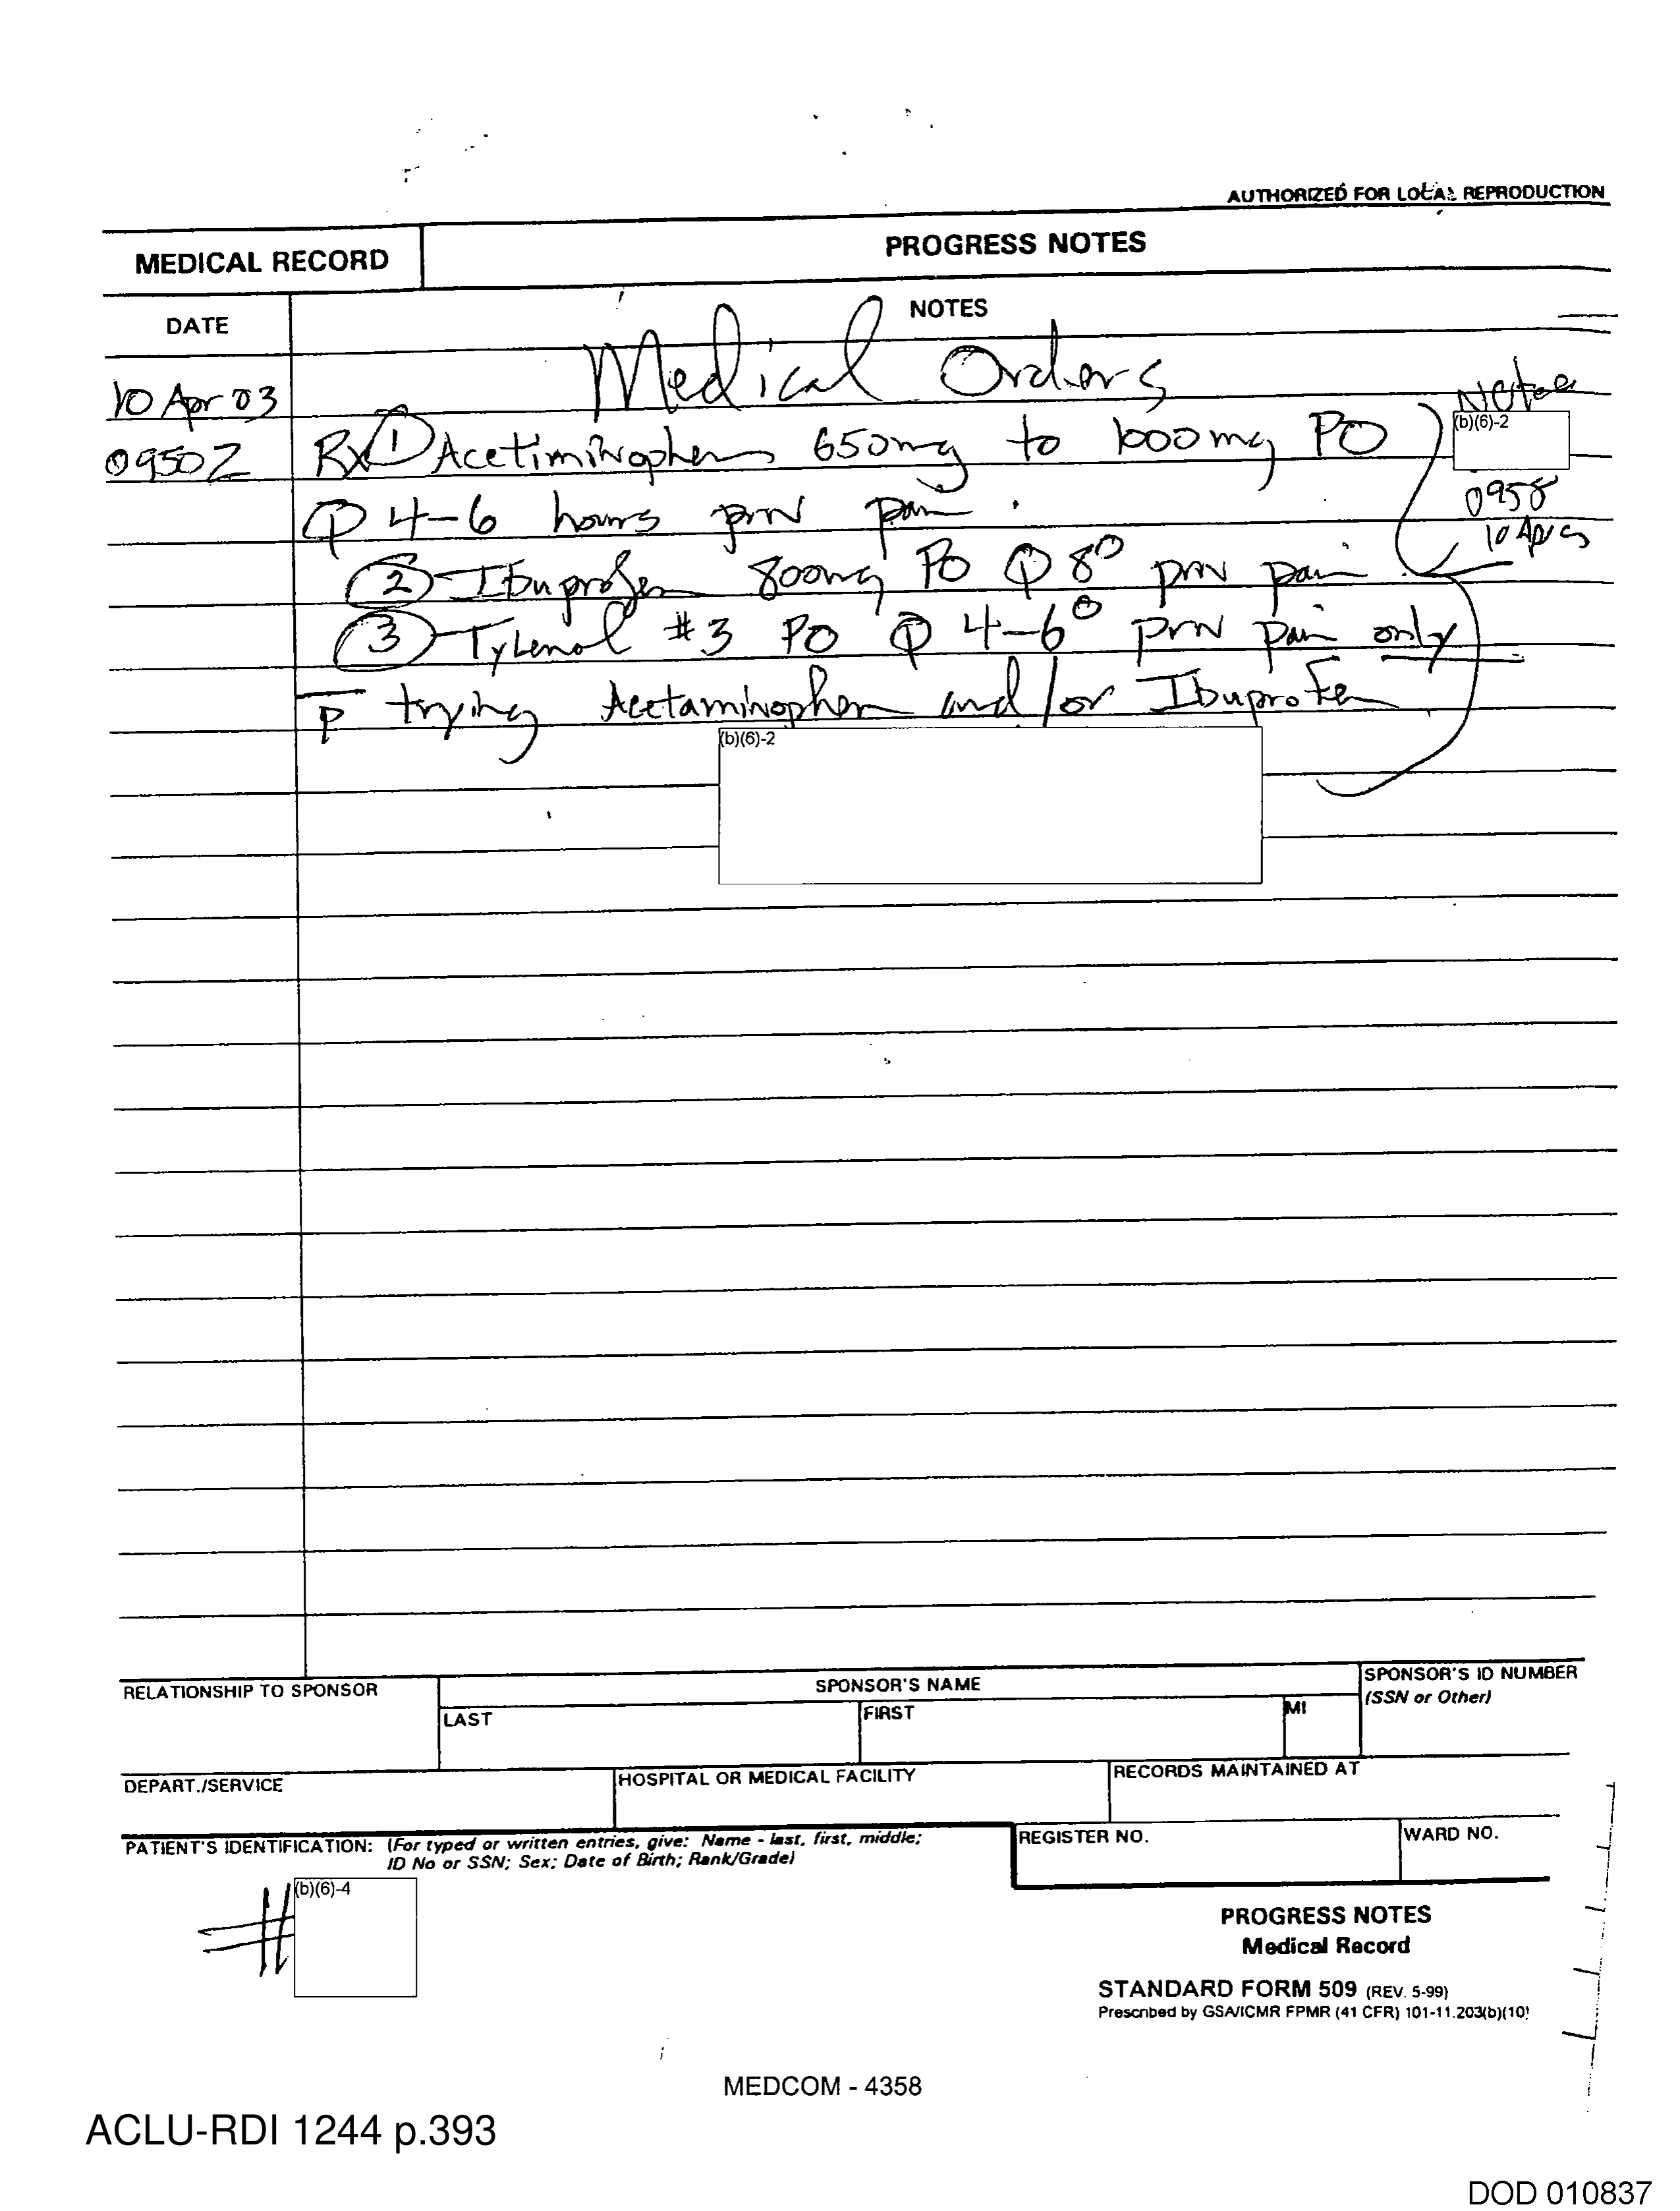 AUTHORIZED FOR LOCAL REPRODUCTION
MEDICAL RECORD
PROGRESS NOTES
DATE
NOTES
Medical Orders
10 Apr 03
Noted
(b)(6)-2
0950Z
Rx ① Acetiminophen 650mg to 1000mg PO
0958
Q 4-6 hours prn pain.
② Ibuprofen 800mg PO Q 8° prn pain
③ Tylenol #3 PO Q 4-6° prn pain only
p̄ trying Acetaminophen and/or Ibuprofen
(b)(6)-2
RELATIONSHIP TO SPONSOR
SPONSOR'S NAME
SPONSOR'S ID NUMBER
(SSN or Other)
LAST
FIRST
MI
DEPART./SERVICE
HOSPITAL OR MEDICAL FACILITY
RECORDS MAINTAINED AT
PATIENT'S IDENTIFICATION: (For typed or written entries, give: Name - last, first, middle;
ID No or SSN; Sex; Date of Birth; Rank/Grade)
REGISTER NO.
WARD NO.
# (b)(6)-4
PROGRESS NOTES
Medical Record
STANDARD FORM 509 (REV. 5-99)
Prescribed by GSA/ICMR FPMR (41 CFR) 101-11.203(b)(10)
MEDCOM - 4358
ACLU-RDI 1244 p.393
DOD 010837